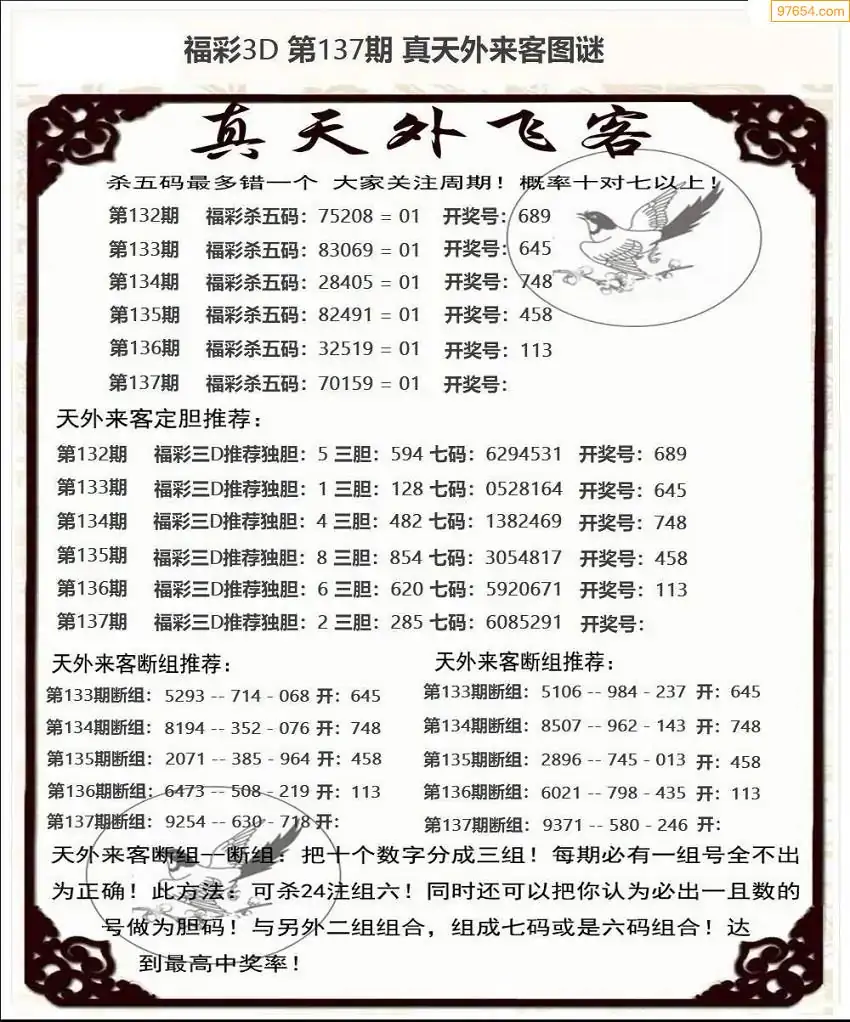 97654.com
福彩3D 第137期 真天外来客图谜
真天外飞客
杀五码最多错一个 大家关注周期！概率十对七以上！
第132期 福彩杀五码：75208 = 01 开奖号：689
第133期 福彩杀五码：83069 = 01 开奖号：645
第134期 福彩杀五码：28405 = 01 开奖号：748
第135期 福彩杀五码：82491 = 01 开奖号：458
第136期 福彩杀五码：32519 = 01 开奖号：113
第137期 福彩杀五码：70159 = 01 开奖号：
天外来客定胆推荐：
第132期 福彩三D推荐独胆：5 三胆：594 七码：6294531 开奖号：689
第133期 福彩三D推荐独胆：1 三胆：128 七码：0528164 开奖号：645
第134期 福彩三D推荐独胆：4 三胆：482 七码：1382469 开奖号：748
第135期 福彩三D推荐独胆：8 三胆：854 七码：3054817 开奖号：458
第136期 福彩三D推荐独胆：6 三胆：620 七码：5920671 开奖号：113
第137期 福彩三D推荐独胆：2 三胆：285 七码：6085291 开奖号：
天外来客断组推荐：
第133期断组：5293 -- 714 - 068 开：645
第134期断组：8194 -- 352 - 076 开：748
第135期断组：2071 -- 385 - 964 开：458
第136期断组：6473 -- 508 - 219 开：113
第137期断组：9254 -- 630 - 718 开：
天外来客断组推荐：
第133期断组：5106 -- 984 - 237 开：645
第134期断组：8507 -- 962 - 143 开：748
第135期断组：2896 -- 745 - 013 开：458
第136期断组：6021 -- 798 - 435 开：113
第137期断组：9371 -- 580 - 246 开：
天外来客断组一断组：把十个数字分成三组！每期必有一组号全不出
为正确！此方法：可杀24注组六！同时还可以把你认为必出一且数的
号做为胆码！与另外二组组合，组成七码或是六码组合！达
到最高中奖率！